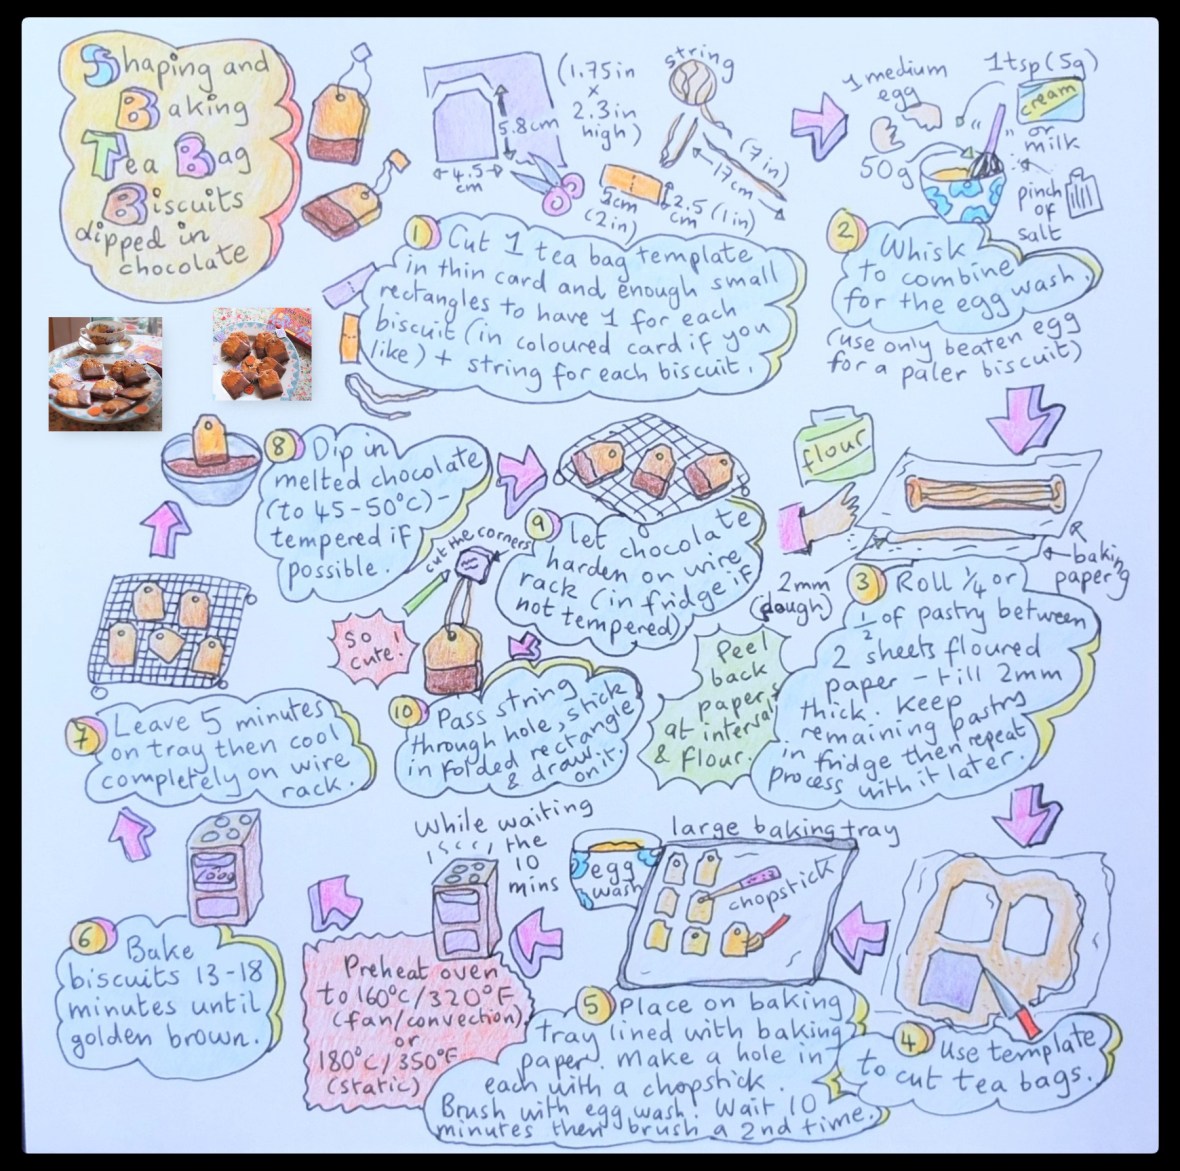 Shaping and
Baking
Tea Bag
Biscuits
dipped in
chocolate
(1.75in
x
2.3in
high)
5.8cm
4.5
cm
string
(7in)
17cm
5cm
(2in)
2.5 (1in)
cm
1 Cut 1 tea bag template
in thin card and enough small
rectangles to have 1 for each
biscuit (in coloured card if you
like) + string for each biscuit.
1 medium
egg
50g
1tsp (5g)
cream
or
milk
pinch
of
salt
2 Whisk
to combine
for the egg wash.
(use only beaten egg
for a paler biscuit)
flour
baking
paper
2mm
(dough)
3 Roll 1/4 or
1/2 of pastry between
2 sheets floured
paper - till 2mm
thick. Keep
remaining pastry
in fridge then repeat
process with it later.
Peel
back
papers
at intervals
& flour.
4 Use template
to cut tea bags.
large baking tray
egg
wash
chopstick
5 Place on baking
tray lined with baking
paper. Make a hole in
each with a chopstick.
Brush with egg wash. Wait 10
minutes then brush a 2nd time.
While waiting
the
10
mins
Preheat oven
to 160°C/320°F
(fan/convection)
or
180°C/350°F
(static)
6 Bake
biscuits 13-18
minutes until
golden brown.
7 Leave 5 minutes
on tray then cool
completely on wire
rack.
8 Dip in
melted chocolate
(to 45-50°C) -
tempered if
possible.
9 Let chocolate
harden on wire
rack (in fridge if
not tempered)
cut the corners
So
cute!
10 Pass string
through hole, stick
in folded rectangle
& draw
on it.